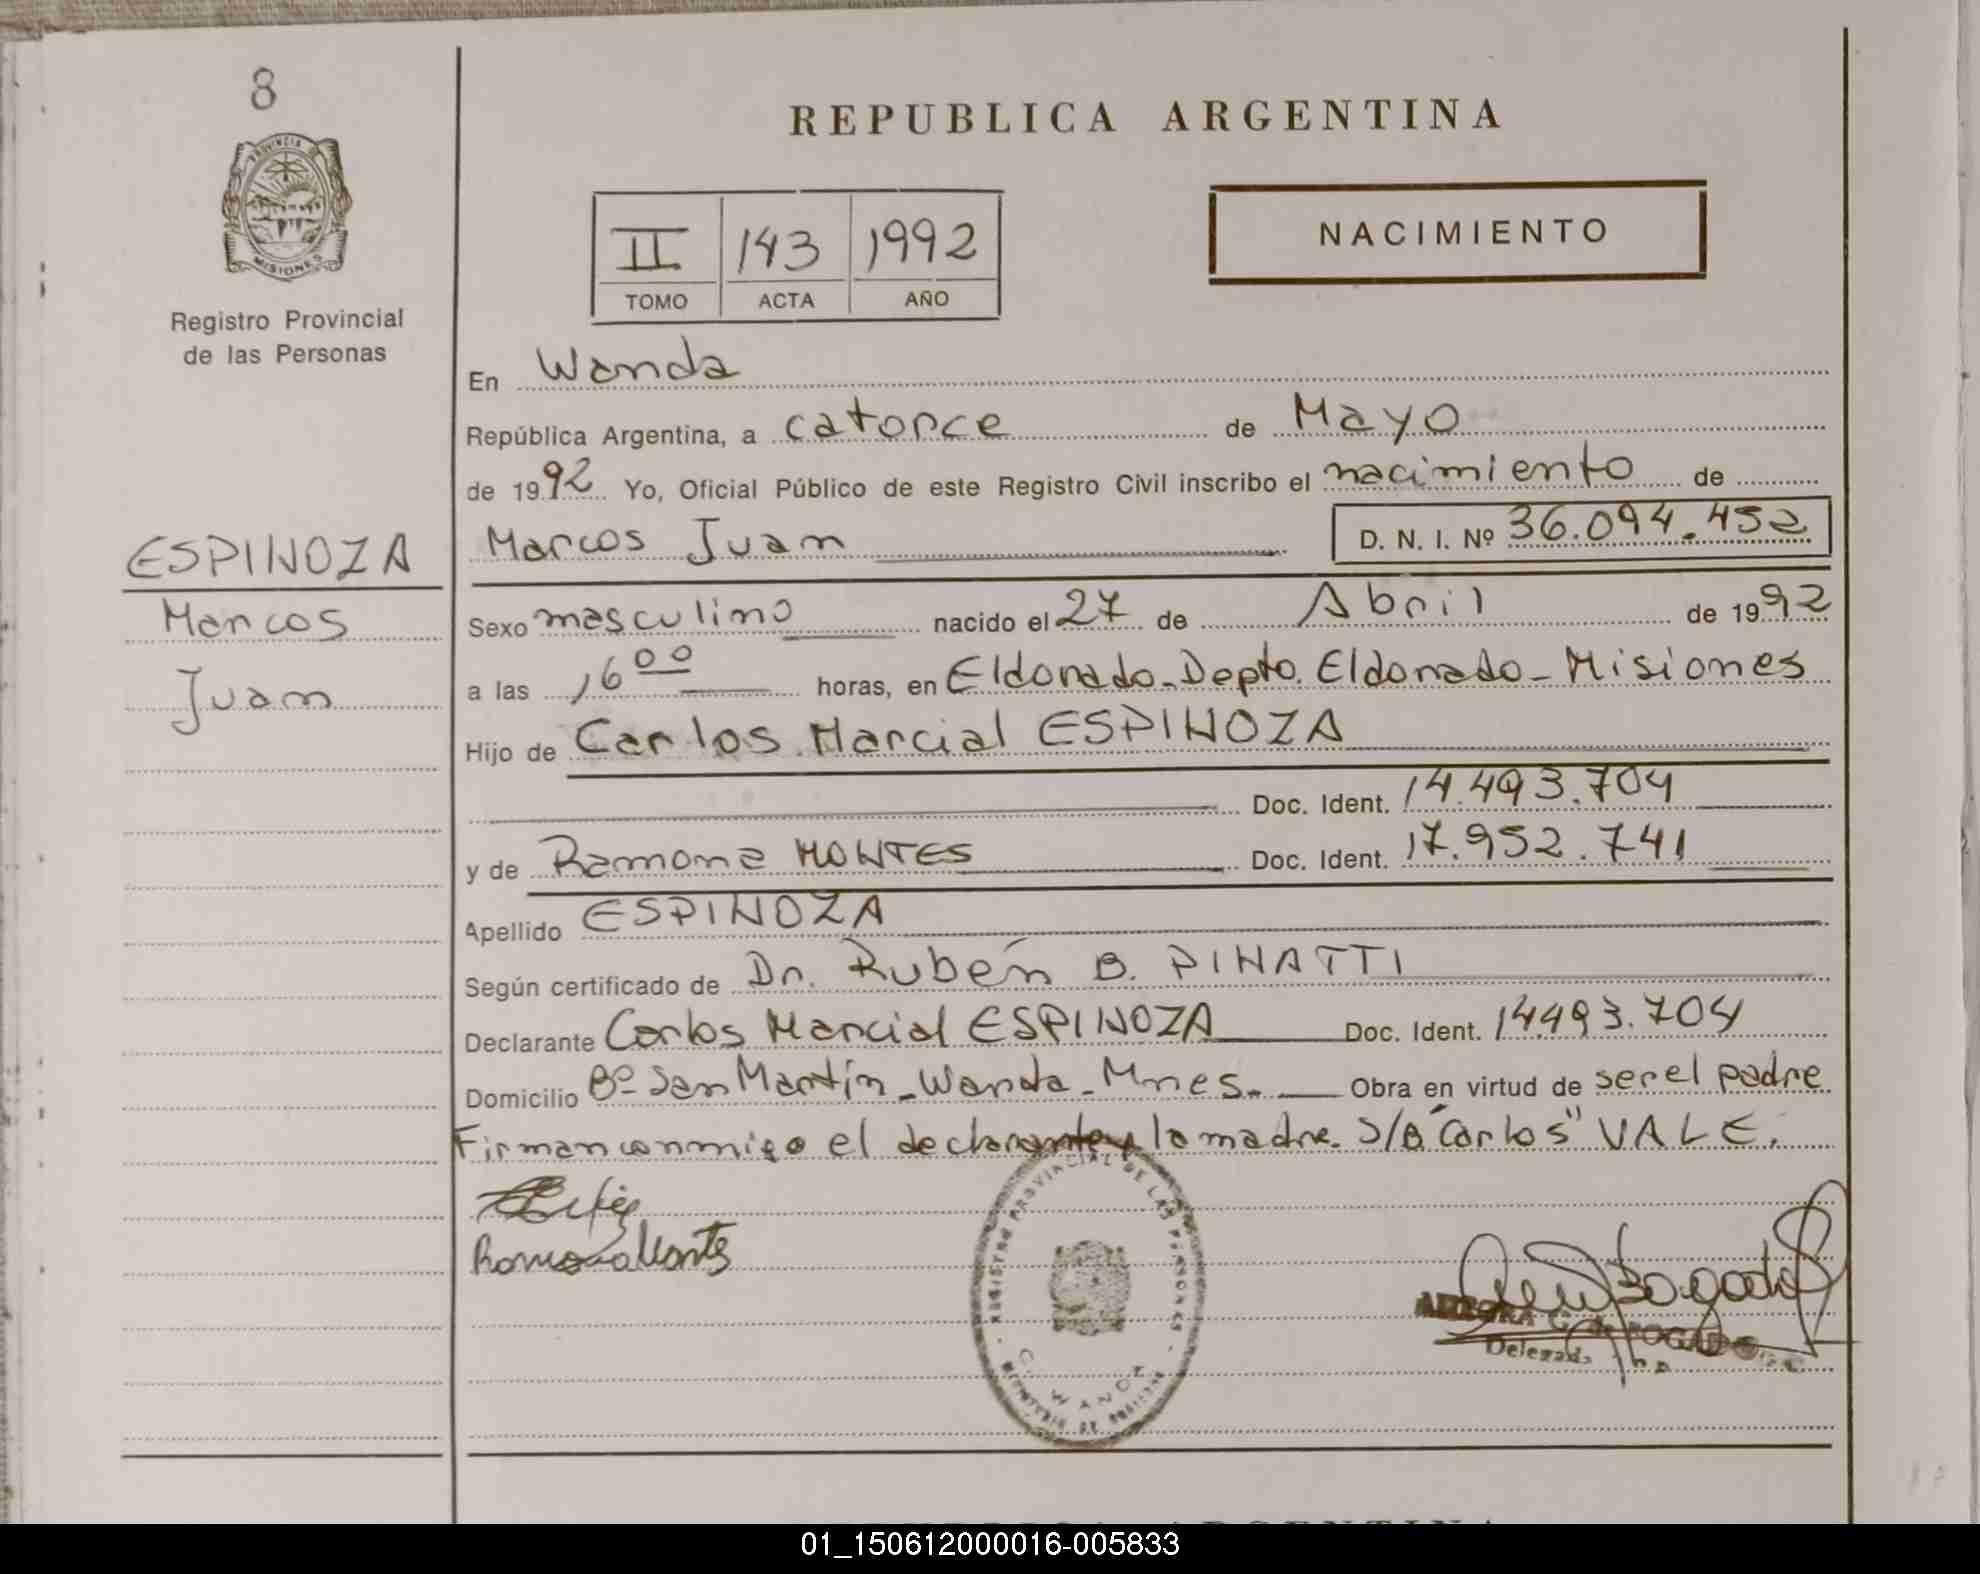 8
PROVINCIA DE
MISIONES
Registro Provincial
de las Personas
ESPINOZA
Marcos
Juan
REPUBLICA ARGENTINA
II 143 1992
TOMO ACTA AÑO
NACIMIENTO
En Wanda
República Argentina, a catorce de Mayo
de 1992 Yo, Oficial Público de este Registro Civil inscribo el nacimiento de
Marcos Juan D. N. I. Nº 36.094.452
Sexo masculino nacido el 27 de Abril de 1992
a las 16 00 horas, en Eldorado-Depto. Eldorado-Misiones
Hijo de Carlos Marcial ESPINOZA
Doc. Ident. 14.493.704
y de Ramona MONTES Doc. Ident. 17.952.741
Apellido ESPINOZA
Según certificado de Dr. Rubén B. PINATTI
Declarante Carlos Marcial ESPINOZA Doc. Ident. 14493.704
Domicilio Bº San Martín-Wanda-Mnes. Obra en virtud de ser el padre
Firman conmigo el declarante y la madre. S/B "Carlos" VALE.
Ramona Montes
REGISTRO PROVINCIAL DE LAS PERSONAS
WANDA
G. de BOGADO
Delegada
01_150612000016-005833